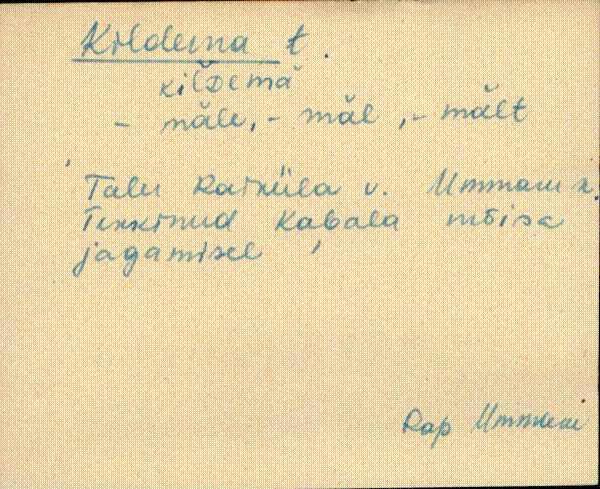 Kildema t.
kildemä
- mäle, - mäl, - mält
Talu Raiküla v. Ummaru k.
Tekkinud Kabala mõisa
jagamisel
Rap Ummaru